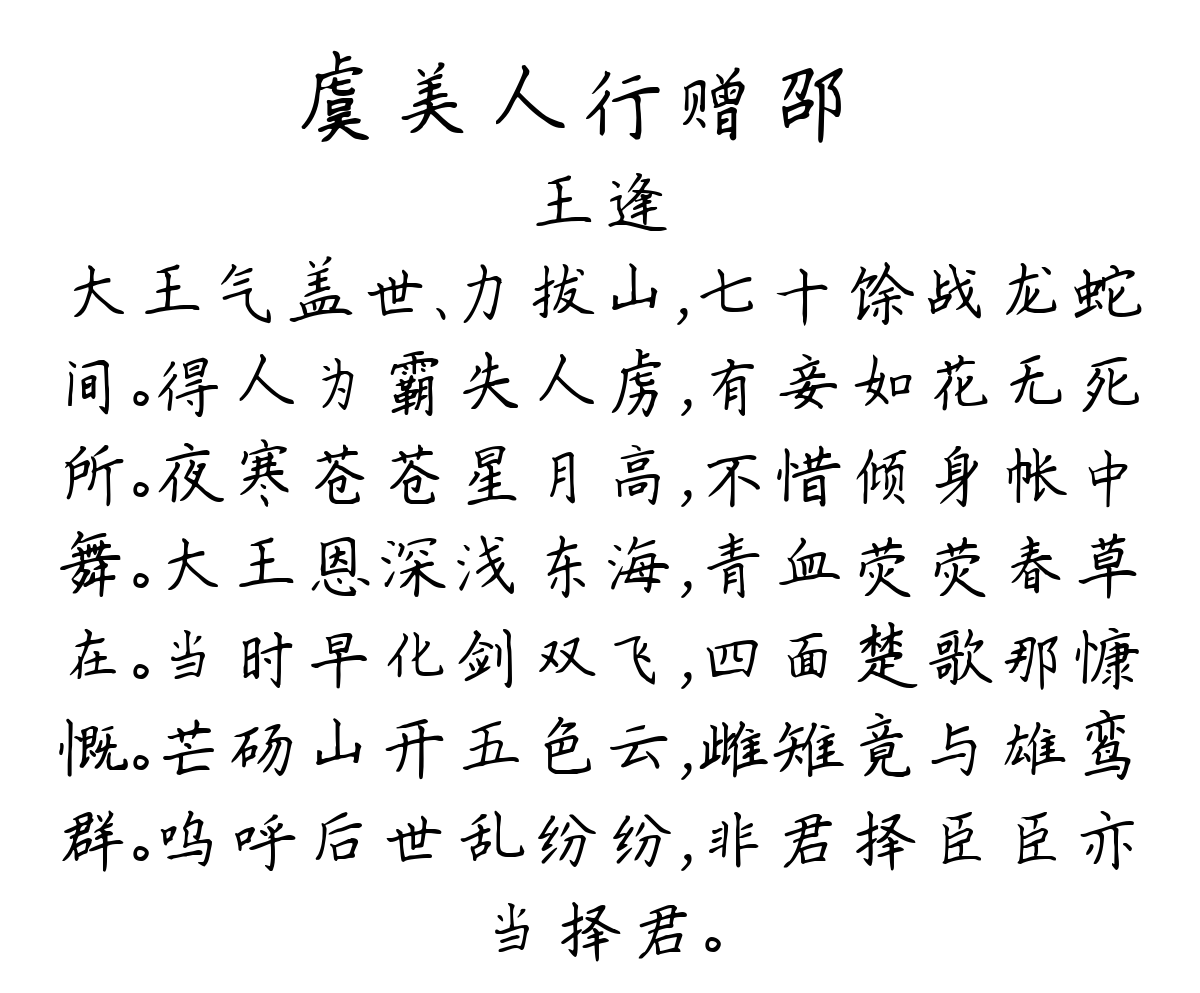 虞美人行赠邵
王逢
大王气盖世、力拔山,七十馀战龙蛇
间。得人为霸失人虏,有妾如花无死
所。夜寒苍苍星月高,不惜倾身帐中
舞。大王恩深浅东海,青血荧荧春草
在。当时早化剑双飞,四面楚歌那慷
慨。芒砀山开五色云,雌雉竟与雄鸾
群。呜呼后世乱纷纷,非君择臣臣亦
当择君。